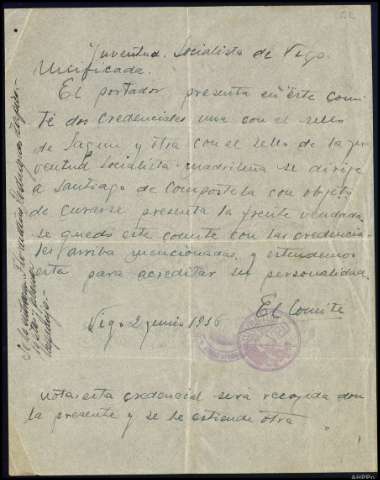 Juventud. Socialista de Vigo.
Unificada.
El portador presenta en este comi
té dos credenciales una con el sello
de Sagum y otra con el sello de la ju
ventud socialista madrileña se dirige
a Santiago de Compostela con objeto
de curarse presenta la frente vendada
se quedó este comite con las credencia
les arriba mencionadas y extendemos
esta para acreditar su personalidad.
El Comite
Vigo 2 junio 1936
nota: esta credencial sera recojida don
la presente y se le estiende otra